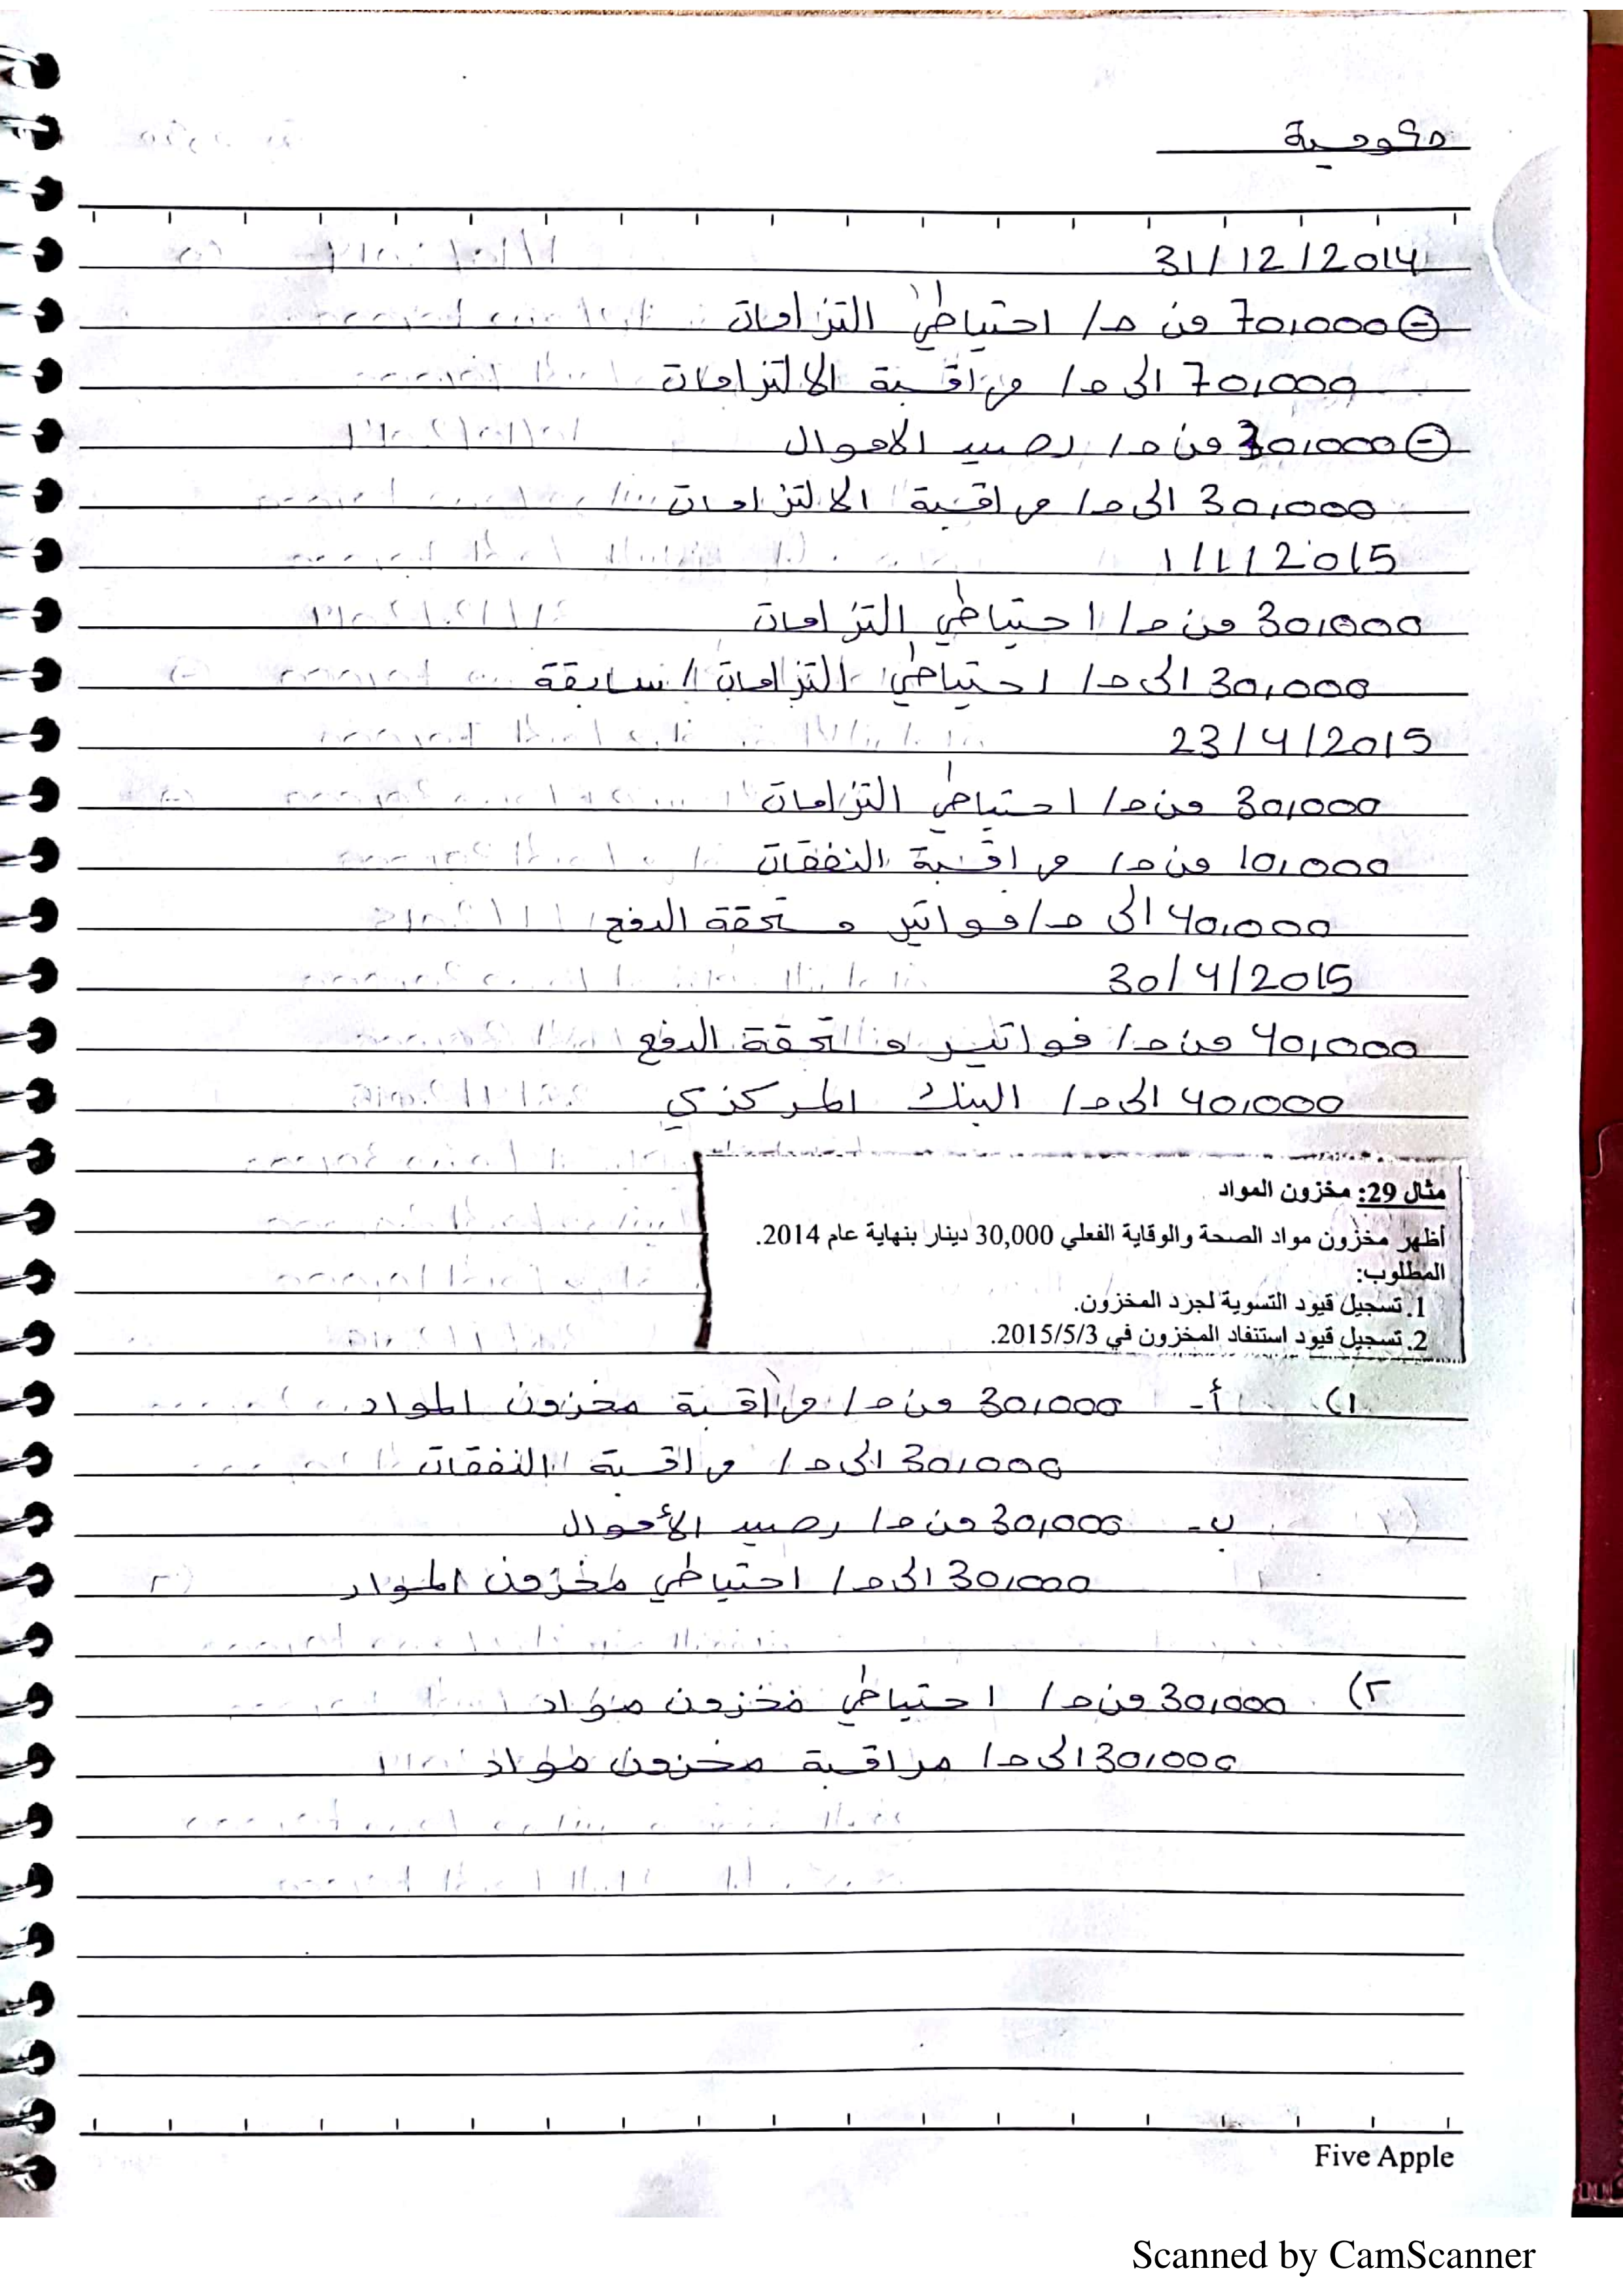 حكومية
31/12/2014
70,000 من ح/ احتياطي التزامات
70,000 الى ح/ مراقبة الالتزامات
30,000 من ح/ رصيد الاموال
30,000 الى ح/ مراقبة الالتزامات
1/1/2015
30,000 من ح/ احتياطي التزامات
30,000 الى ح/ احتياطي التزامات / سابقة
23/4/2015
30,000 من ح/ احتياطي التزامات
10,000 من ح/ مراقبة النفقات
40,000 الى ح/ فواتير مستحقة الدفع
30/4/2015
40,000 من ح/ فواتير مستحقة الدفع
40,000 الى ح/ البنك المركزي
مثال 29: مخزون المواد
أظهر مخزون مواد الصحة والوقاية الفعلي 30,000 دينار بنهاية عام 2014.
المطلوب:
1. تسجيل قيود التسوية لجرد المخزون.
2. تسجيل قيود استنفاد المخزون في 2015/5/3.
١) أ- 30,000 من ح/ مراقبة مخزون المواد
30,000 الى ح/ مراقبة النفقات
ب- 30,000 من ح/ رصيد الأموال
30,000 الى ح/ احتياطي مخزون المواد
٢) 30,000 من ح/ احتياطي مخزون مواد
30,000 الى ح/ مراقبة مخزون مواد
Five Apple
Scanned by CamScanner